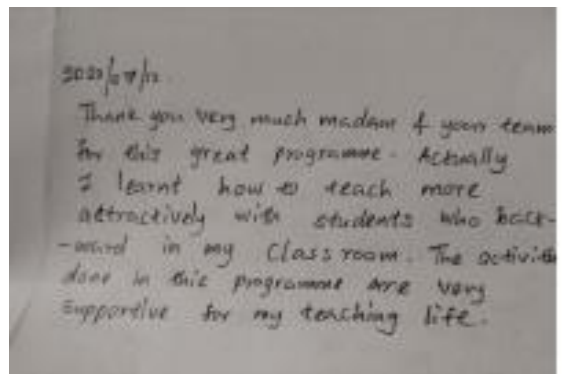 Thank you very much madam & your team
for this great programme. Actually
I learnt how to teach more
attractively with students who back-
-ward in my Class room. The activities
done in this programme are very
supportive for my teaching life.